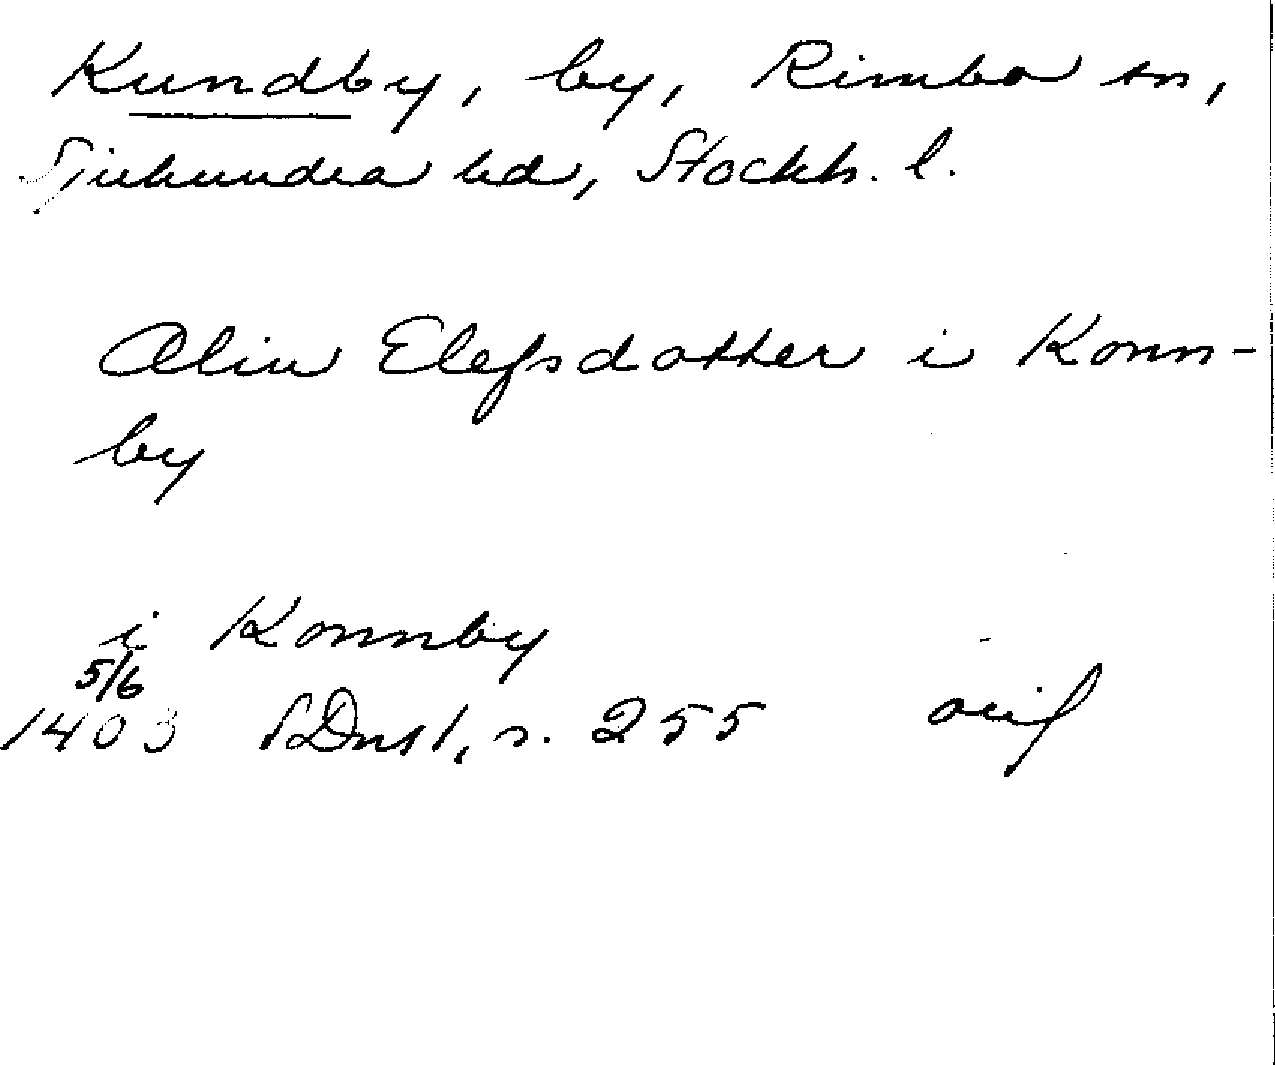 Kundby, by, Rimbo sn,
Sjuhundra hd, Stockh. l.
Aliu Elefsdotter i Konn-
by
i Konnby
5/6
1403 SDns 1, s. 255 orig